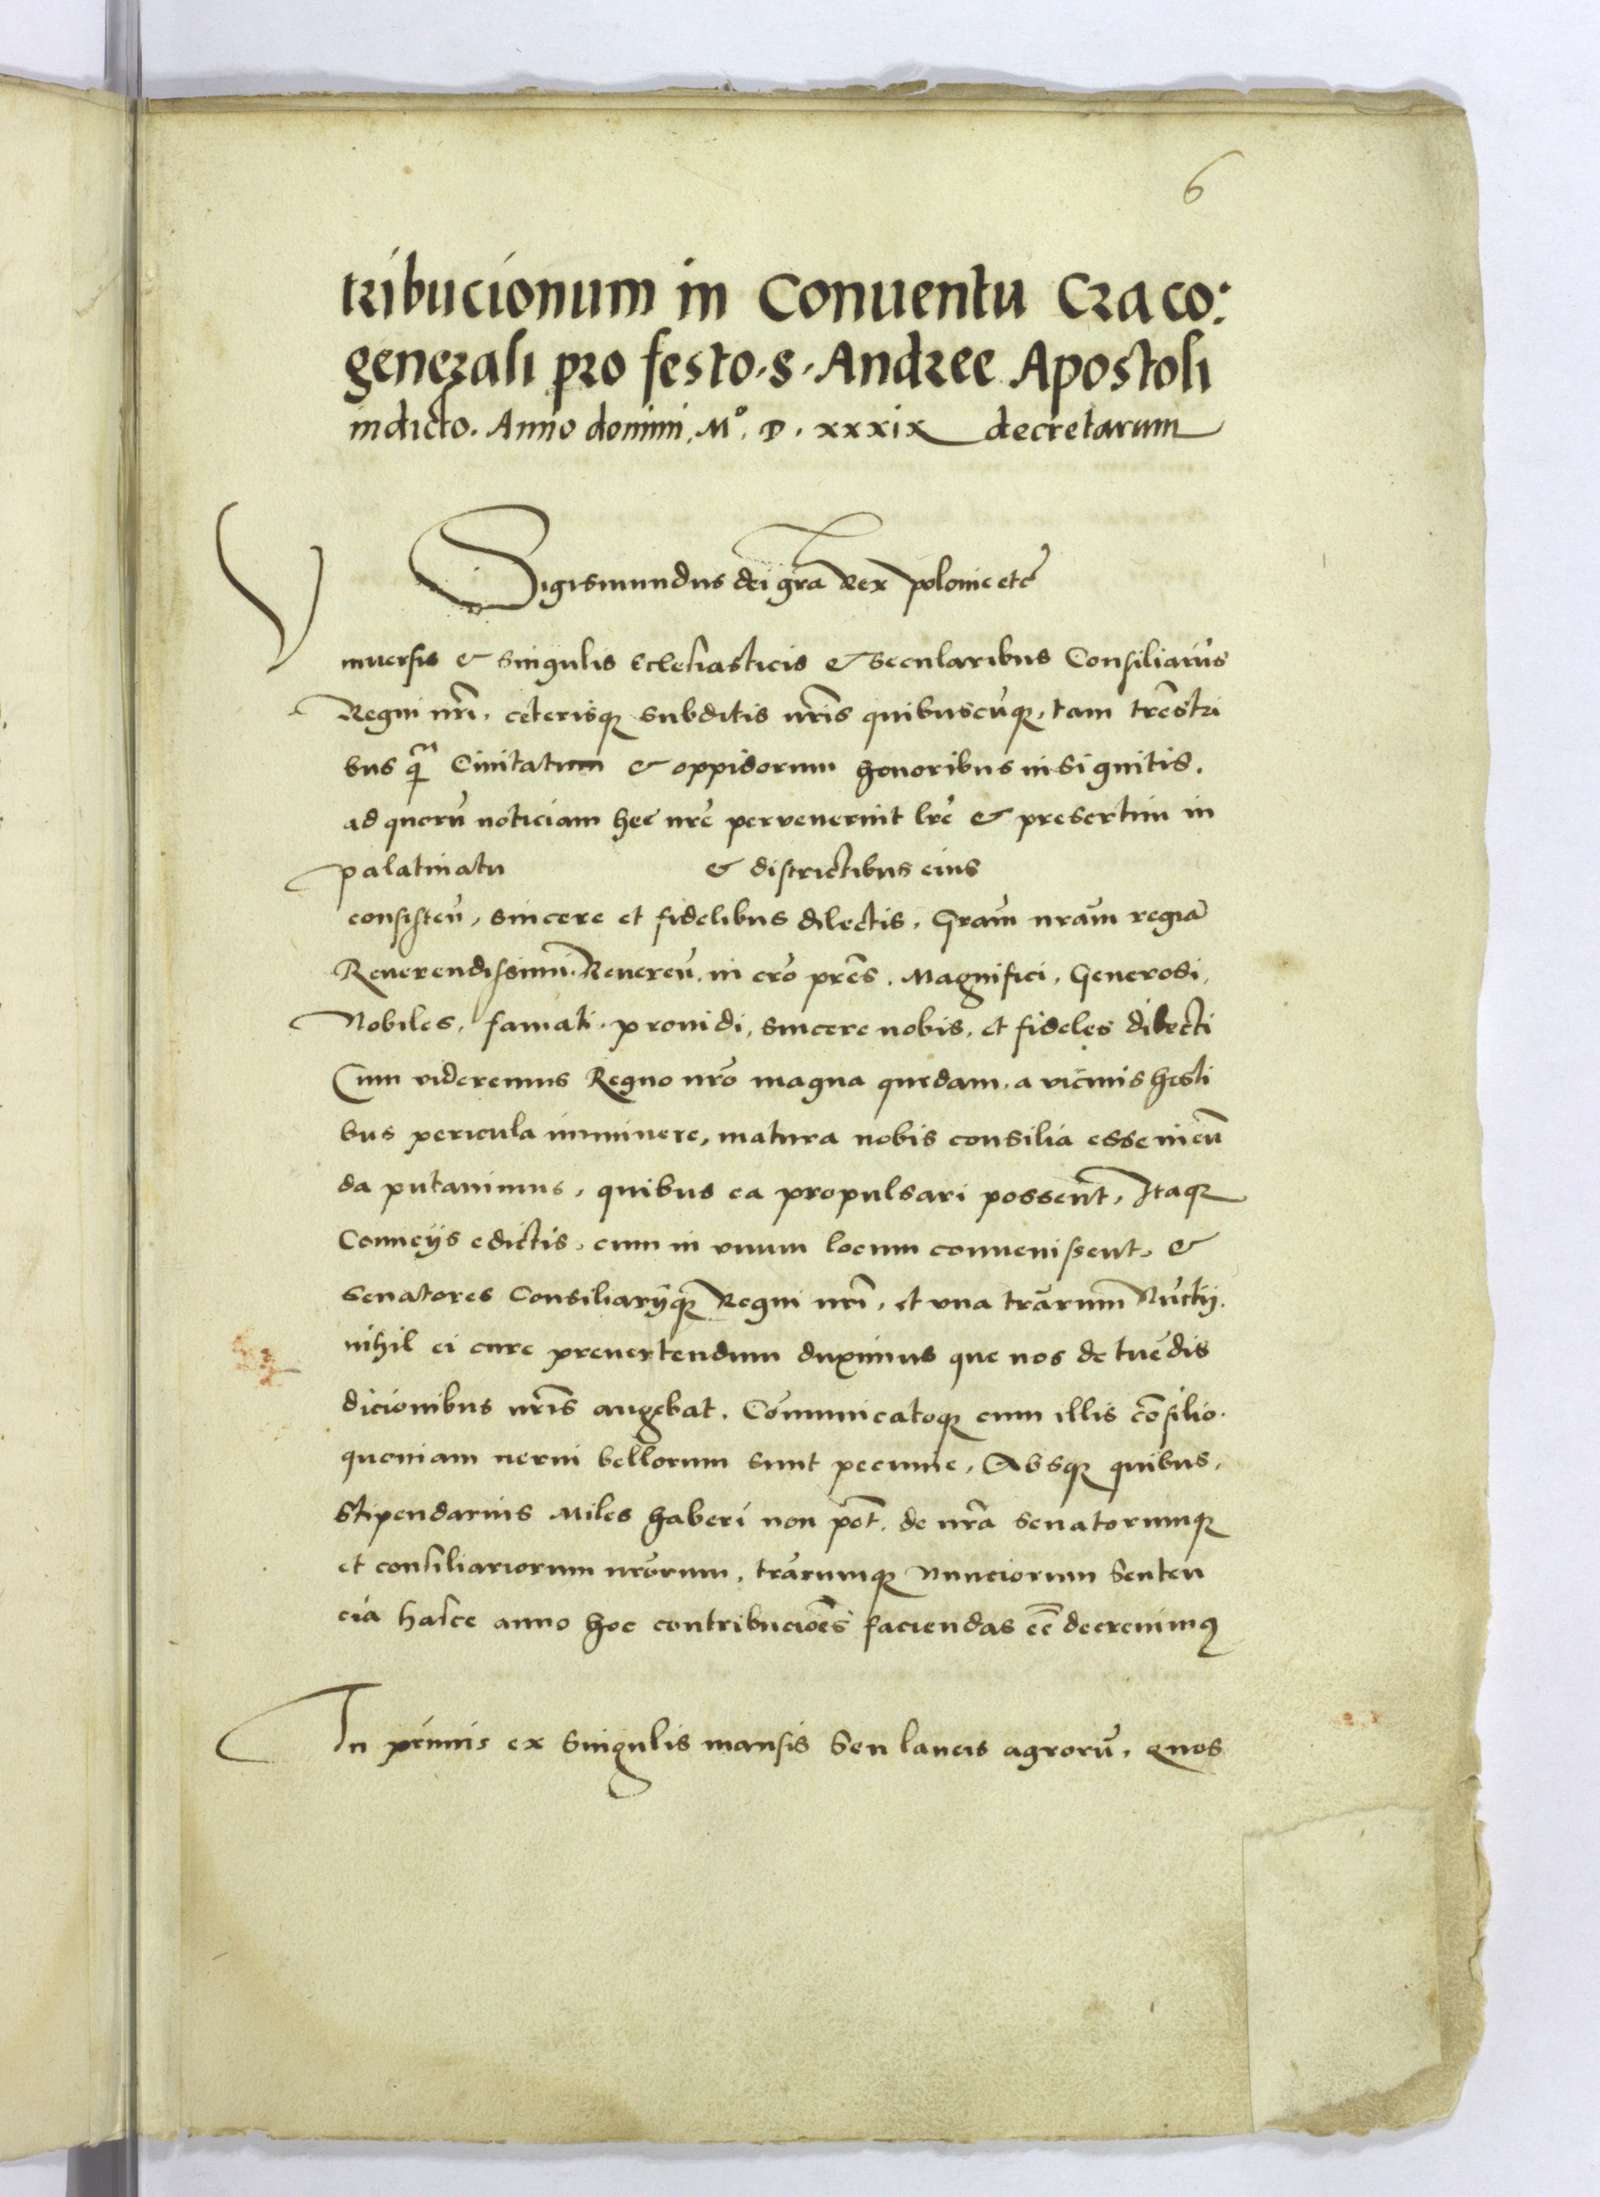 6
tribucionum in Conuentu Craco:
generali pro festo. s. Andree Apostoli
indicto. Anno domini. Mº. D. xxxix decretarum
Sigismundus dei grã Rex polonie etc̃
Vniuersis & singulis Ecclesiasticis & secularibus Consiliarijs
Regni nr̃i, ceterisq̃ subditis nr̃is quibuscũq̃, tam trẽstri
bus q̃ Ciuitatum & oppidorum honoribus insignitis,
ad quorũ noticiam hec nr̃e peruenerint lr̃e & presertim in
palatinatu & districtibus eius
consisteñ, sincere et fidelibus dilectis, Gram̃ nram̃ regiã
Reuerendissimi. Reuereñ. in cr̃o pr̃es. Magnifici. Generosi,
Nobiles, famati. prouidi, sincere nobis, et fideles dilecti
Cum uideremus Regno nr̃o magna quedam, a uicinis hosti
bus pericula imminere, matura nobis consilia esse ineuñ
da putauimus, quibus ea propulsari possent, Itaq̃
Conueijs edictis, cum in vnum locum conuenissent, &
Senatores Consiliarijq̃ Regni nr̃i, et vna trarum̃ Nũctij.
nihil ei cure preuertendum duximus que nos de tuẽdis
dicionibus nr̃is angebat. Cõmunicatoq̃ cum illis cõsilio.
quoniam nerui bellorum sunt pecunie, Absq̃ quibus,
stipendarius Miles haberi non põt. de nr̃a Senatorumq̃
et consiliariorum nrõrum, trãrumq̃ Nunciorum Senten
cia hasce anno hoc contribuciões faciendas eẽ decreuimq̃
In primis ex singulis mansis Seu laneis agrorũ, quos